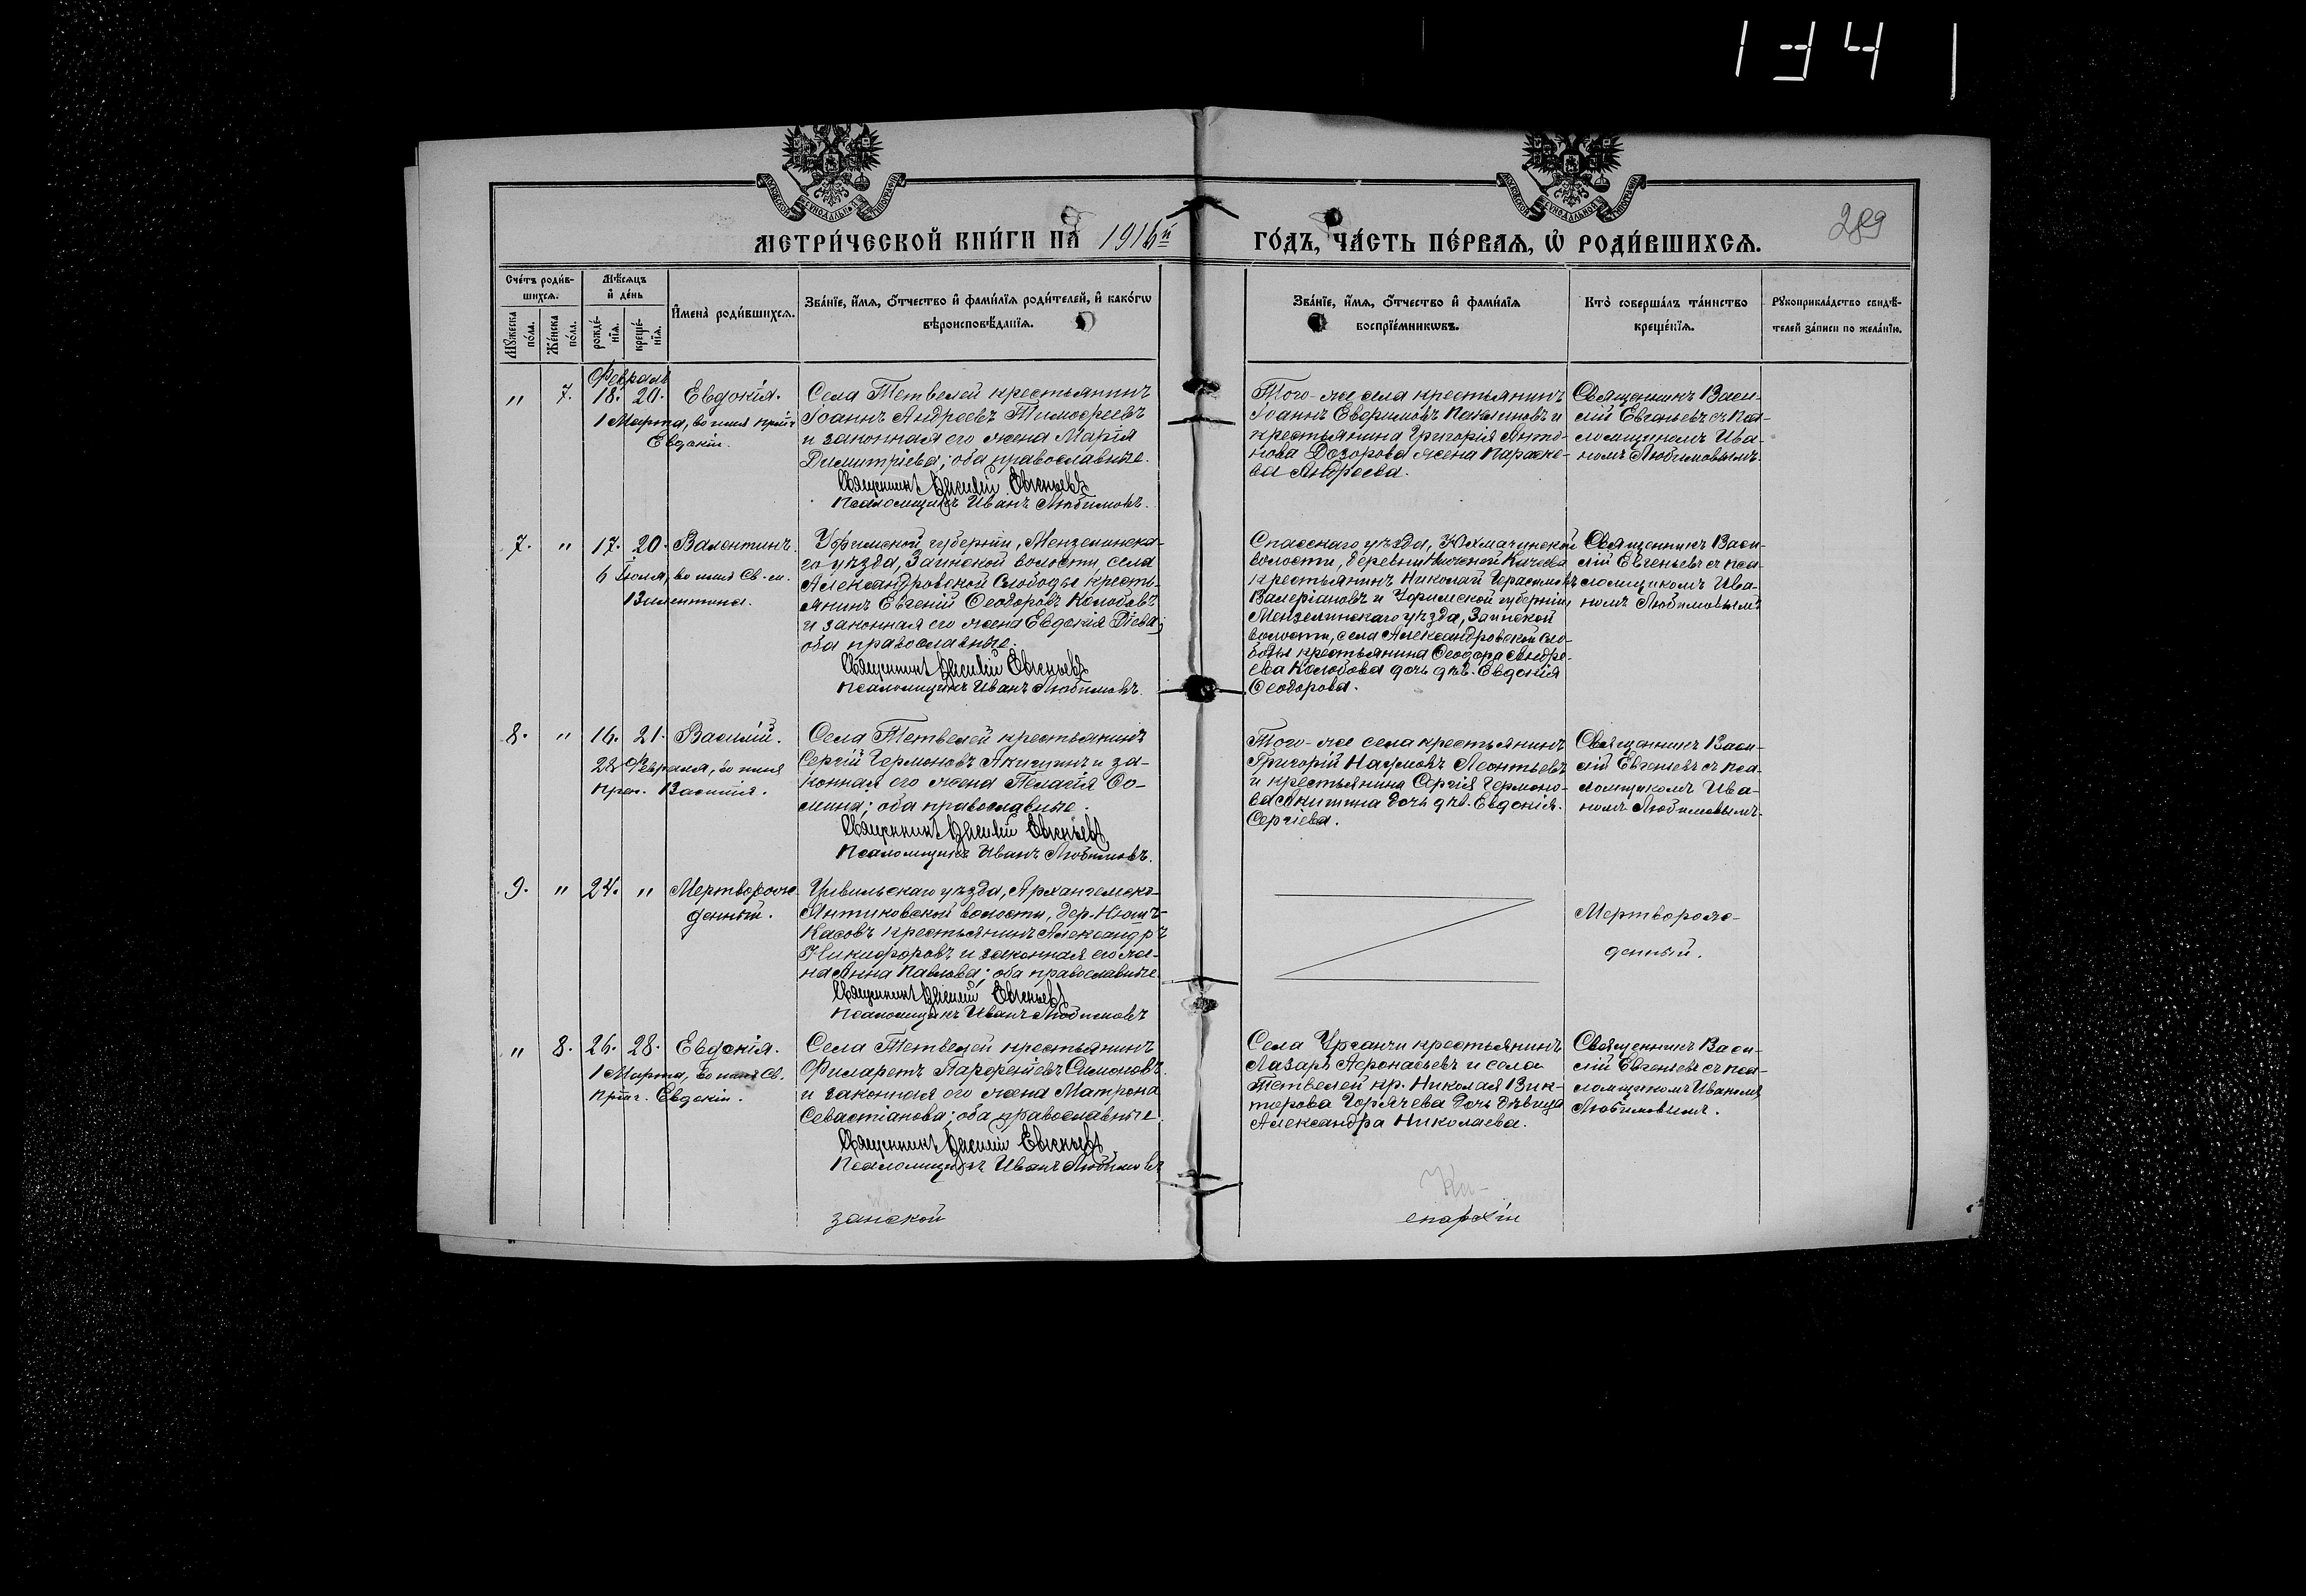 1341
МОСКОВСКОЙ СѴНОДАЛЬНОЙ ТИПОГРАФІИ
МОСКОВСКОЙ СѴНОДАЛЬНОЙ ТИПОГРАФІИ
МЕТРИ́ЧЕСКОЙ КНИ́ГИ НА 1916й
ГО́ДЪ, ЧА́СТЬ ПЕ́РВАѦ, Ѡ҆ РОДИ́ВШИХСѦ.
289
Сче́тъ роди́в-
шихсѧ.
Мѣ́сѧцъ
и҆ де́нь
Мꙋ́жеска
по́ла.
Же́нска
по́ла.
рожде́-
нїѧ.
креще́-
нїѧ.
И҆мена̀ роди́вшихсѧ.
Зва́нїе, и҆́мѧ, ѻ҆́тчество и҆ фами́лїѧ роди́телей, и҆ како́гѡ
вѣроисповѣ́данїѧ.
Зва́нїе, и҆́мѧ, ѻ҆́тчество и҆ фами́лїѧ
воспрїе́мникѡвъ.
Кто̀ соверша́лъ та́инство
креще́нїѧ.
Рꙋкоприкла́дство свидѣ́-
телей за́писи по жела́нїю.
Февраль
" 7. 18. 20. Евдокія.
1 Марта, во имя прпч.
Евдокіи.
Села Тетвелей крестьянинъ
Іоаннъ Андреевъ Тимофеевъ
и законная его жена Марія
Димитріева; оба православные.
Священникъ Василій Евгеньевъ
Псаломщикъ Иванъ Любимовъ.
Того-же села крестьянинъ
Іоаннъ Евфимовъ и
крестьянина Григорія Анто-
нова Дозорова жена Параске-
ва Андреева.
Священникъ Васи-
лій Евгеньевъ съ пса-
ломщикомъ Ива-
номъ Любимовымъ.
7. " 17. 20. Валентинъ.
6 Іюля, во имя Св. м.
Валентина.
Уфимской губерніи, Мензелинска-
го уѣзда, Заинской волости, села
Александровской Слободы кресть-
янинъ Евгеній Ѳеодоровъ Колобовъ
и законная его жена Евдокія Діева;
оба православные.
Священникъ Василій Евгеньевъ
Псаломщикъ Иванъ Любимовъ.
Спасскаго уѣзда, Юхмачинской
волости, деревни Нижней Качеева
крестьянинъ Николай Герасимовъ
Валеріановъ и Уфимской губерніи,
Мензелинскаго уѣзда, Заинской
волости, села Александровской Сло-
боды крестьянина Ѳеодора Андре-
ева Колобова дочь дѣв. Евдокія
Ѳеодорова.
Священникъ Васи-
лій Евгеньевъ съ пса-
ломщикомъ Ива-
номъ Любимовымъ
8. " 16. 21. Василій.
28 Февраля, во имя
преп. Василія.
Села Тетвелей крестьянинъ
Сергій Гермоновъ Акишинъ и за-
конная его жена Пелагія Ѳо-
мина; оба православные.
Священникъ Василій Евгеньевъ
Псаломщикъ Иванъ Любимовъ.
Того-же села крестьянинъ
Григорій Наумовъ Леонтьевъ
и крестьянина Сергія Гермоно-
ва Акишина дочь дѣв. Евдокія
Сергіева.
Священникъ Васи-
лій Евгеньевъ съ пса-
ломщикомъ Ива-
номъ Любимовымъ.
9. " 24. " Мертворож-
денный.
Цивильскаго уѣзда, Архангельско-
Янтиковской волости, дер. Нюшъ-
Касовъ крестьянинъ Александръ
Никифоровъ и законная его же-
на Анна Павлова; оба православные
Священникъ Василій Евгеньевъ
Псаломщикъ Иванъ Любимовъ
Мертворож-
денный.
" 8. 26. 28. Евдокія.
1 Марта, во имя Св.
прпч. Евдокіи.
Села Тетвелей крестьянинъ
Филаретъ Парфеніевъ Симоновъ
и законная его жена Матрона
Севастіанова; оба православные.
Священникъ Василій Евгеньевъ
Псаломщикъ Иванъ Любимовъ
Села Урганчи крестьянинъ
Лазарь Аѳонасьевъ и села
Тетвелей кр. Николая Вик-
торова Горячева дочь дѣвица
Александра Николаева.
Священникъ Васи-
лій Евгеньевъ съ пса-
ломщикомъ Иваномъ
Любимовымъ.
Ка-
занской
епархіи